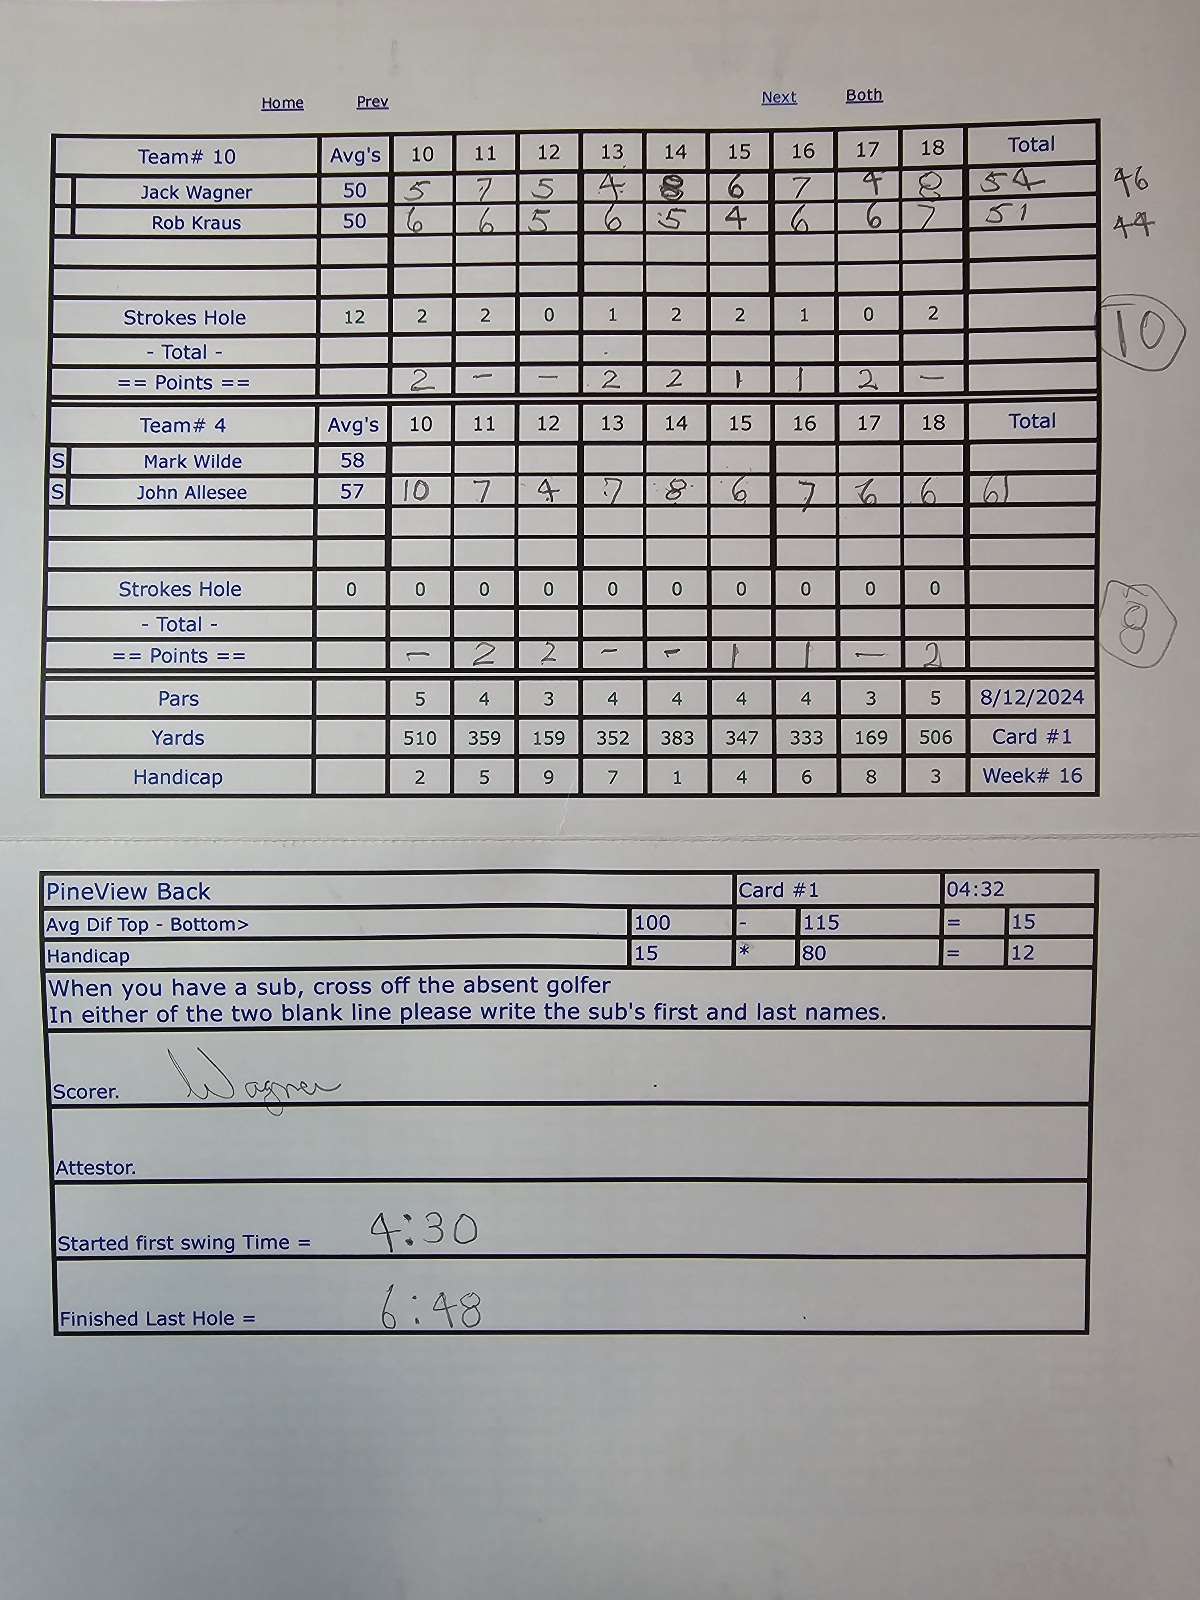 Home Prev Next Both
Team# 10 Avg's 10 11 12 13 14 15 16 17 18 Total
Jack Wagner 50 5 7 5 4 8 6 7 4 8 54 46
Rob Kraus 50 6 6 5 6 5 4 6 6 7 51 44
Strokes Hole 12 2 2 0 1 2 2 1 0 2
- Total - 10
== Points == 2 - - 2 2 1 1 2 -
Team# 4 Avg's 10 11 12 13 14 15 16 17 18 Total
S Mark Wilde 58
S John Allesee 57 10 7 4 7 8 6 7 6 6 61
Strokes Hole 0 0 0 0 0 0 0 0 0 0
- Total - 8
== Points == - 2 2 - - 1 1 - 2
Pars 5 4 3 4 4 4 4 3 5 8/12/2024
Yards 510 359 159 352 383 347 333 169 506 Card #1
Handicap 2 5 9 7 1 4 6 8 3 Week# 16
PineView Back Card #1 04:32
Avg Dif Top - Bottom> 100 - 115 = 15
Handicap 15 * 80 = 12
When you have a sub, cross off the absent golfer
In either of the two blank line please write the sub's first and last names.
Scorer. Wagner
Attestor.
Started first swing Time = 4:30
Finished Last Hole = 6:48